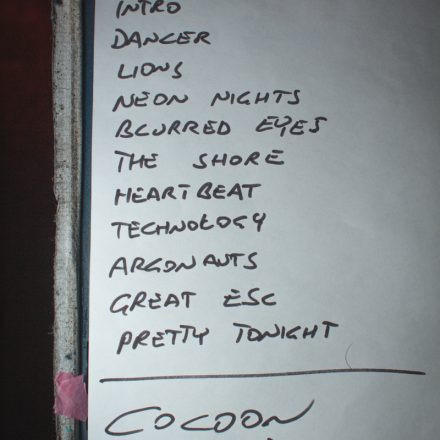 INTRO
DANCER
LIONS
NEON NIGHTS
BLURRED EYES
THE SHORE
HEARTBEAT
TECHNOLOGY
ARGONAUTS
GREAT ESC
PRETTY TONIGHT
COCOON